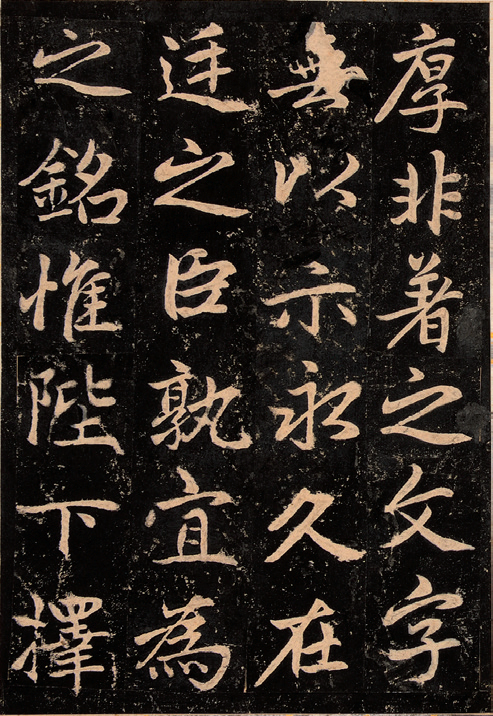 厚非著之文字
無以示永久在
廷之臣孰宜為
之銘惟陛下擇